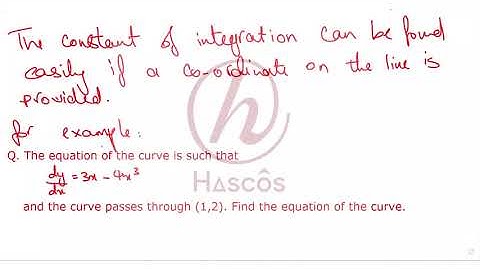 The constant of integration can be found
easily if a co-ordinate on the line is
provided.
for example:
Q. The equation of the curve is such that
dy/dx = 3x - 4x³
HASCÔS
and the curve passes through (1,2). Find the equation of the curve.